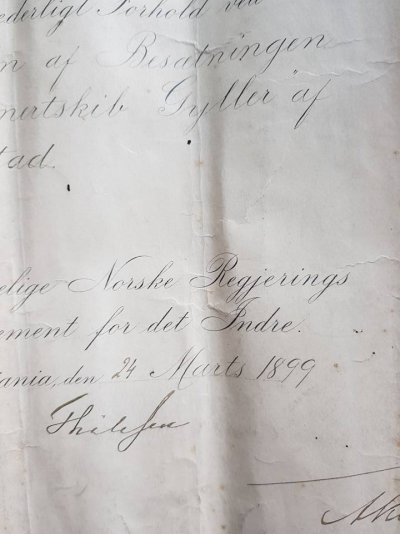 ederligt Forhold ved
n af Besætningen
nertskib "Gyller" af
tad.
elige Norske Regjerings
ement for det Indre.
iania, den 24 Marts 1899